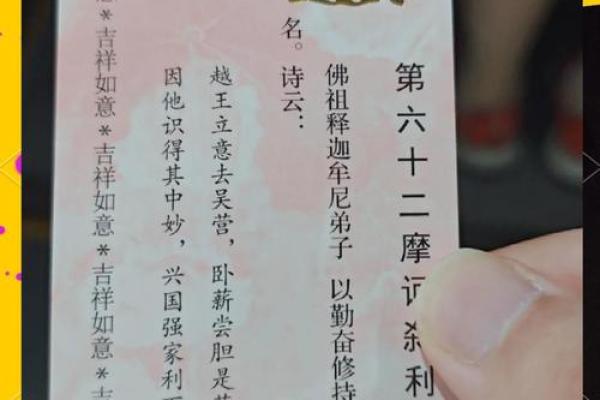 第六十二摩诃杀利
佛祖释迦牟尼弟子 以勤奋修持
名。诗云：
越王立意去吴营，卧薪尝胆是
因他识得其中妙，兴国强家利
*吉祥如意*吉祥如意*吉祥如意*吉